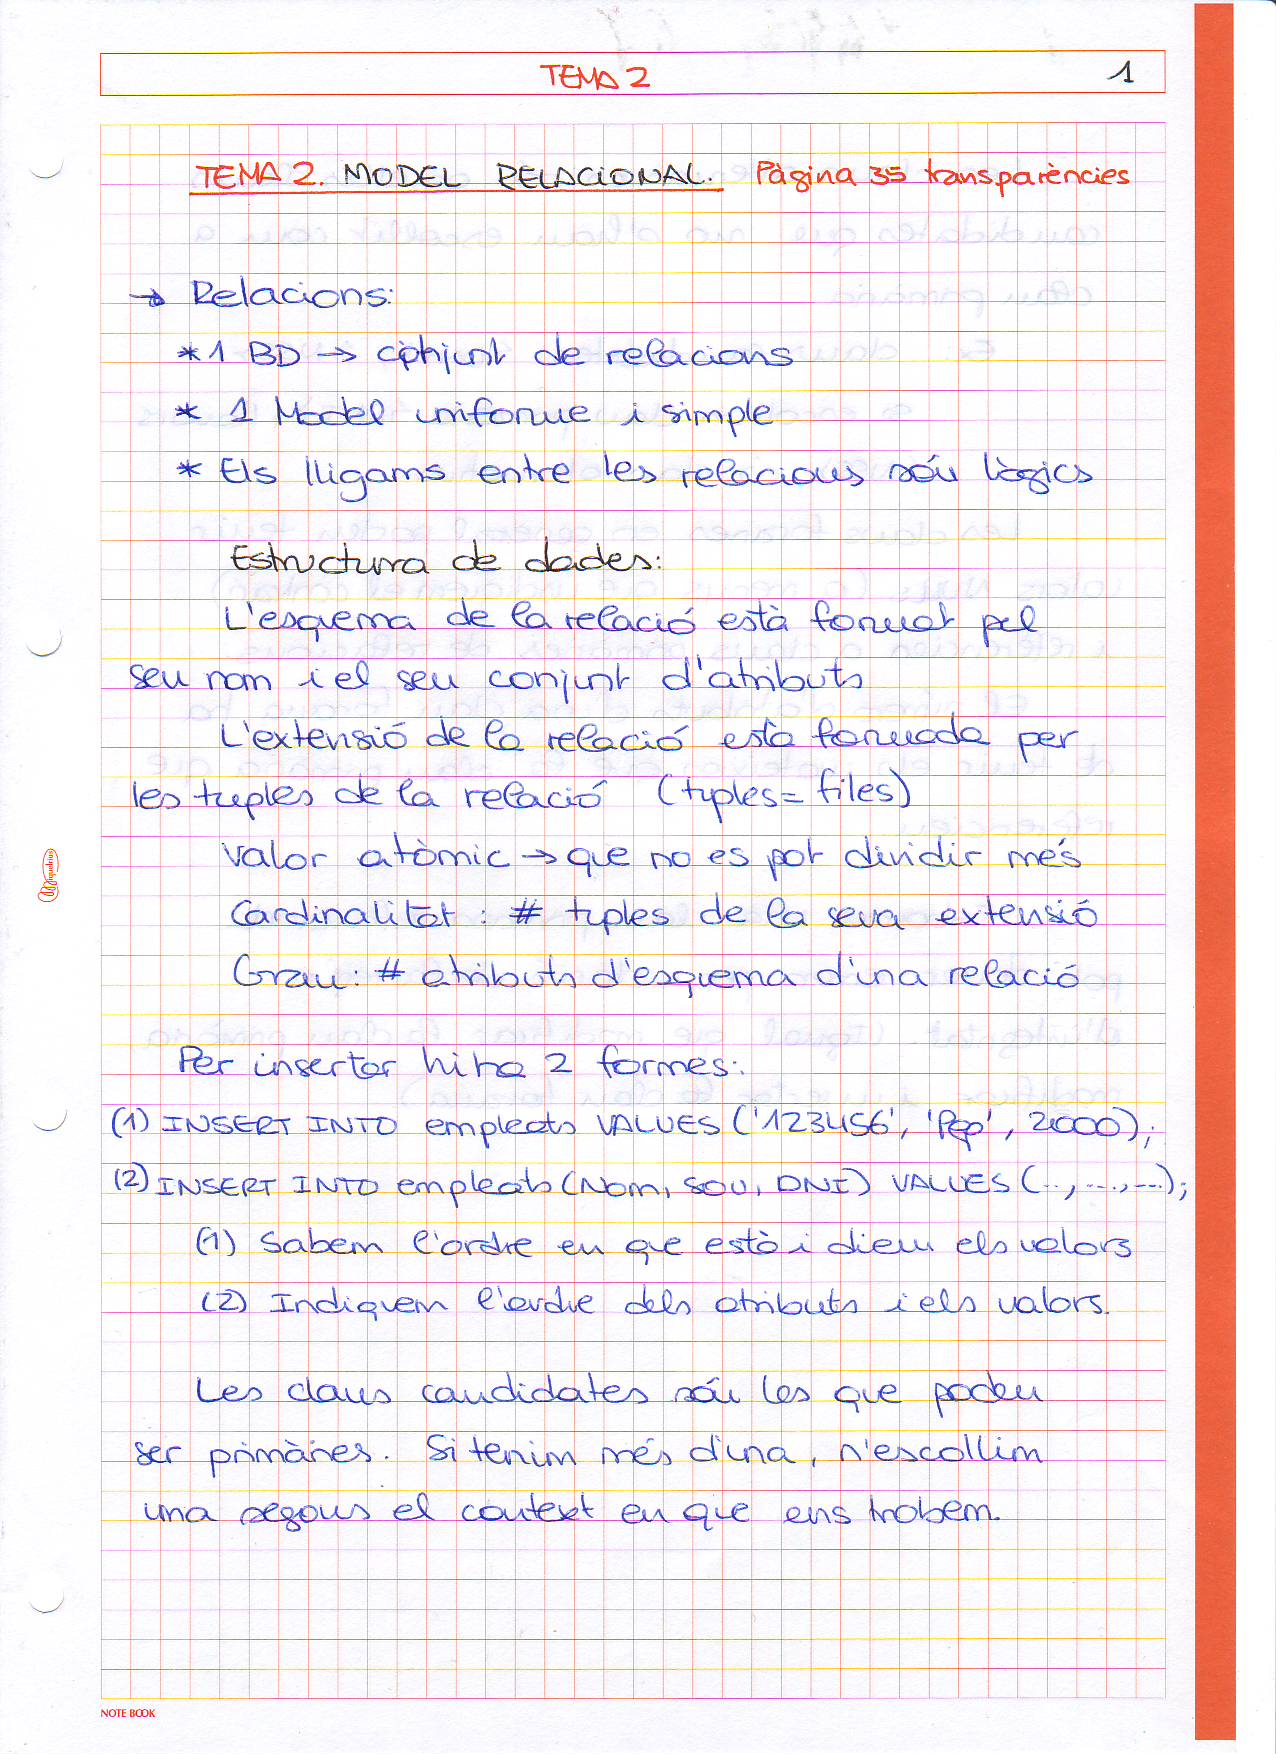 TEMA 2
1
TEMA 2. MODEL RELACIONAL. Pàgina 35 transparències
→ Relacions:
* 1 BD → conjunt de relacions
* 1 Model uniforme i simple
* Els lligams entre les relacions són lògics
Estructura de dades:
L'esquema de la relació està format pel
seu nom i el seu conjunt d'atributs
L'extensió de la relació està formada per
les tuples de la relació (tuples = files)
Valor atòmic → que no es pot dividir més
Cardinalitat : # tuples de la seva extensió
Grau : # atributs d'esquema d'una relació
Per insertar hi ha 2 formes:
(1) INSERT INTO empleats VALUES ('123456', 'Pep', 2000);
(2) INSERT INTO empleats (Nom, SOU, DNI) VALUES (.., ..., ...);
(1) Sabem l'ordre en que està i diem els valors
(2) Indiquem l'ordre dels atributs i els valors.
Les claus candidates són les que poden
ser primàries. Si tenim més d'una, n'escollim
una segons el context en que ens trobem.
NOTE BOOK